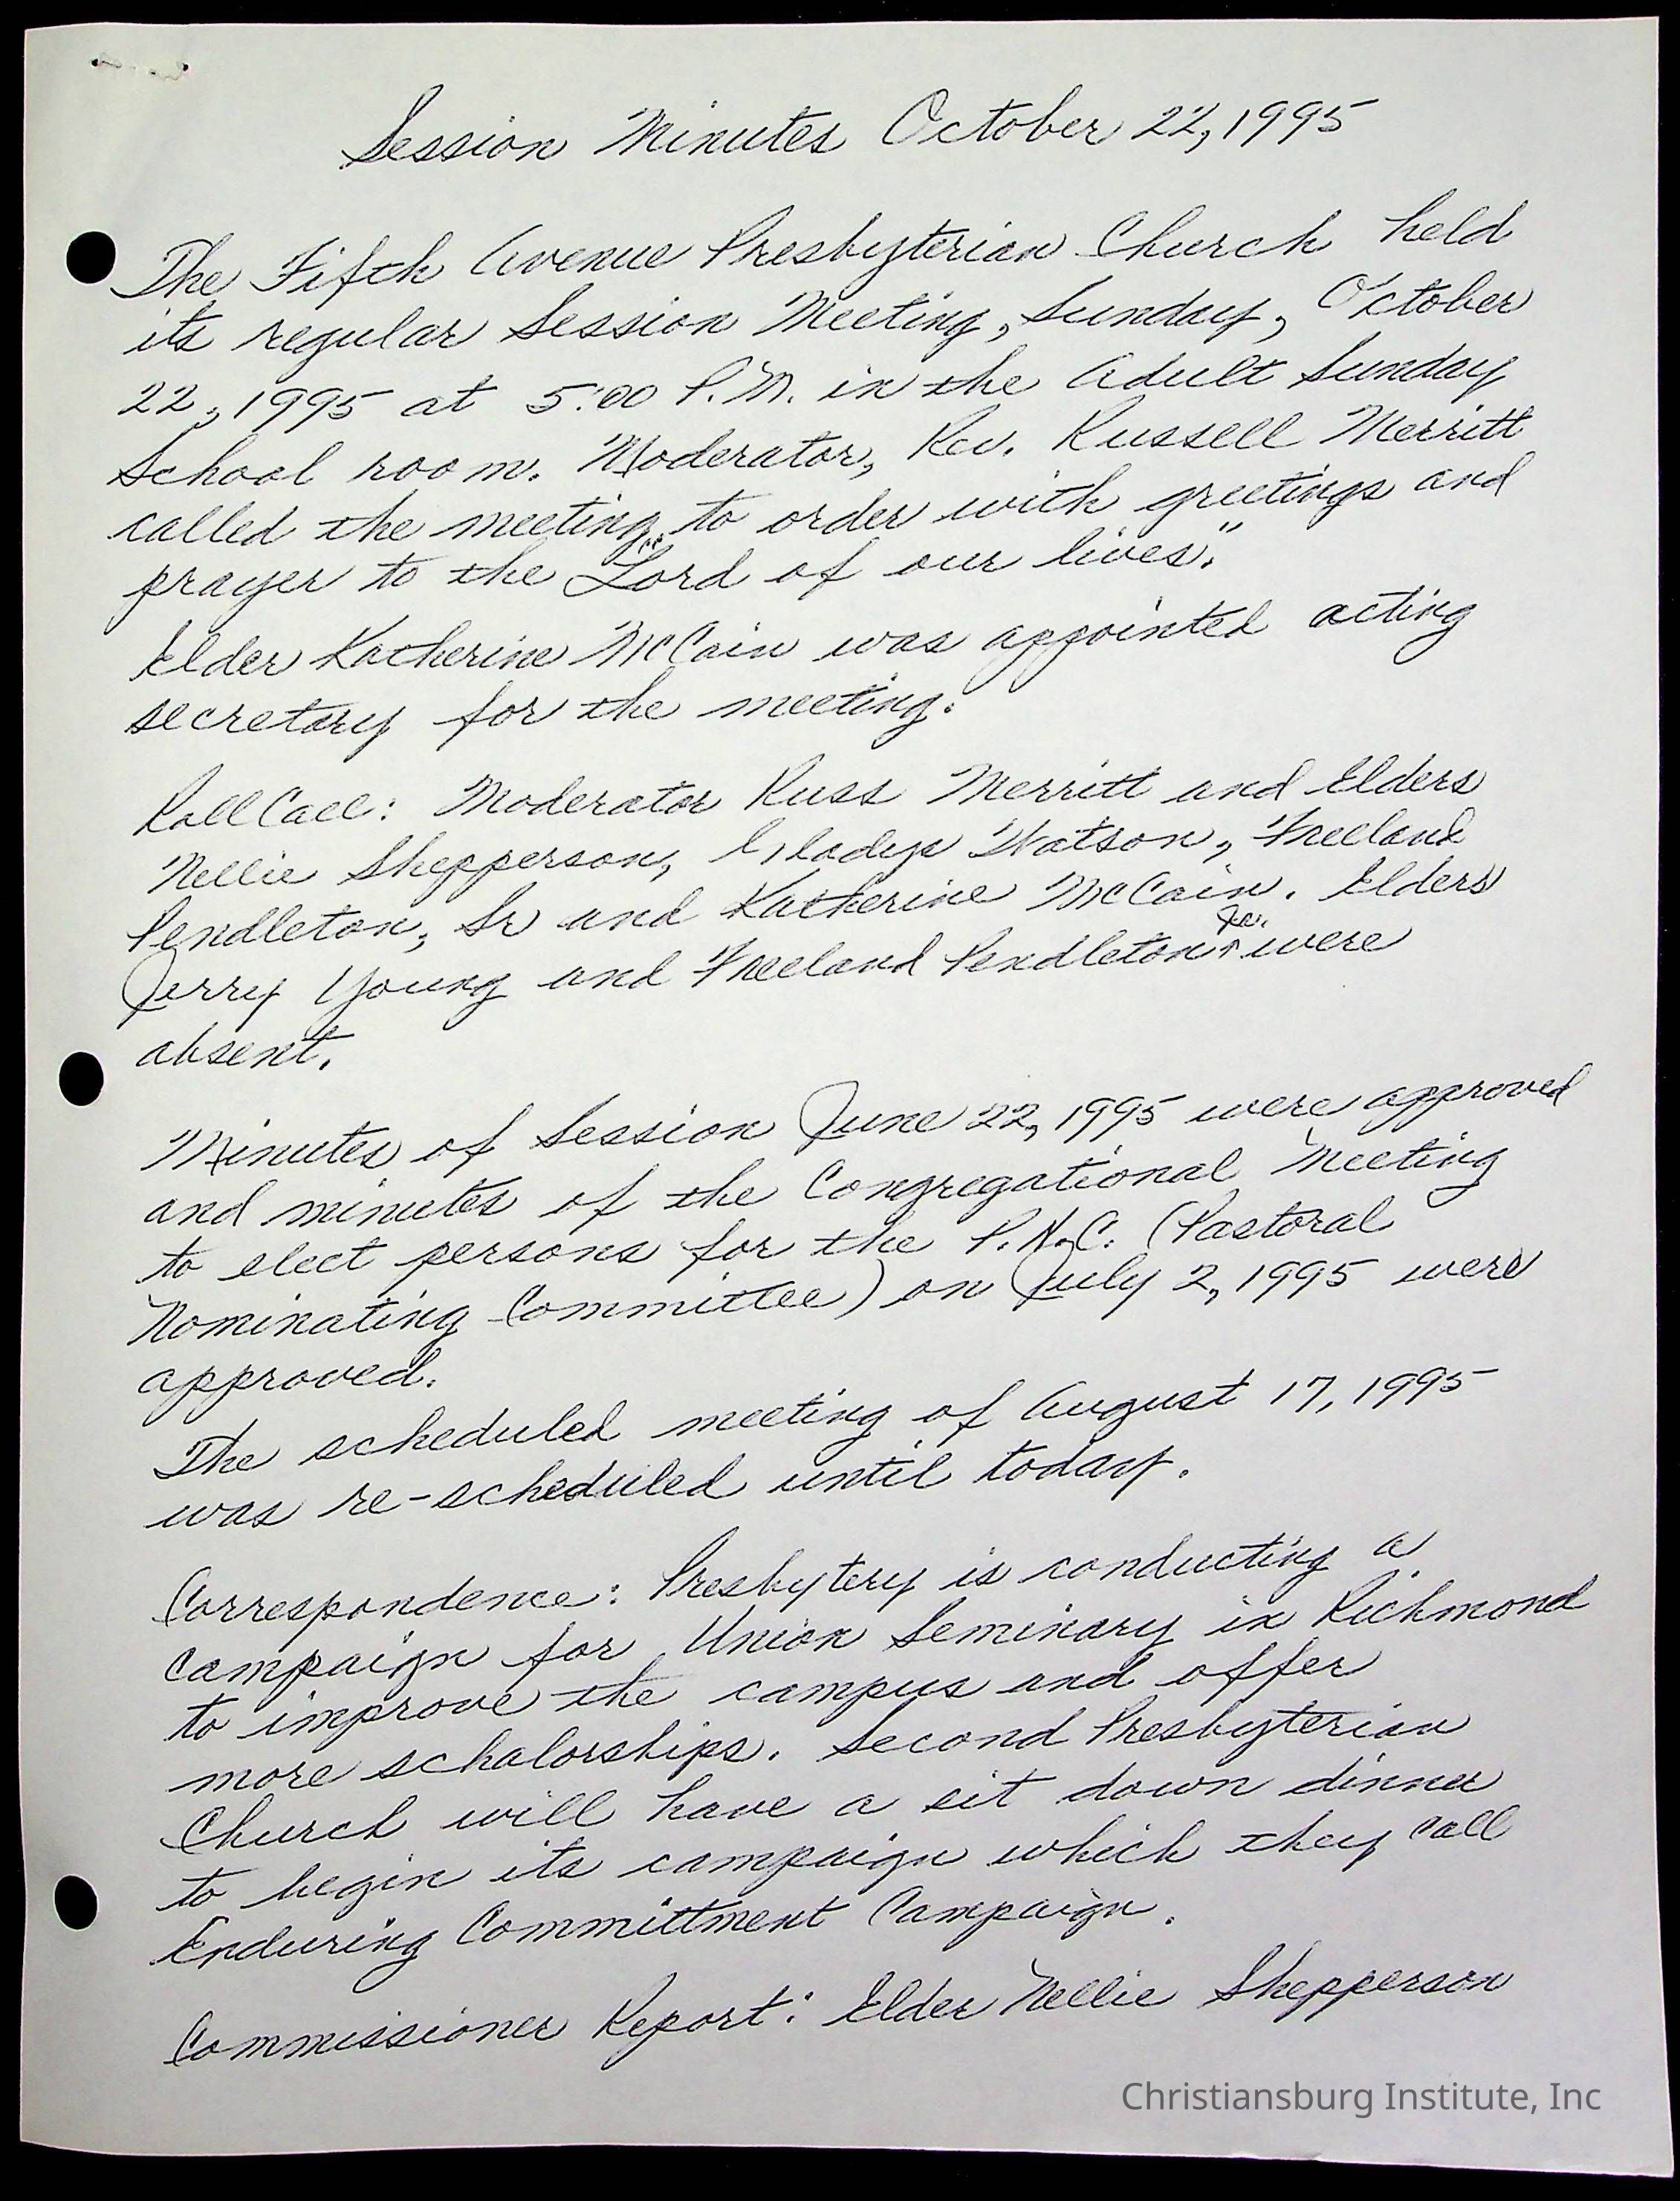 Session Minutes October 22, 1995
The Fifth Avenue Presbyterian Church held
its regular Session Meeting, Sunday, October
22, 1995 at 5:00 P.M. in the Adult Sunday
School room. Moderator, Rev. Russell Merritt
called the meeting to order with greetings and
prayer to the "Lord of our lives."
Elder Katherine McCain was appointed acting
secretary for the meeting.
Roll Call: Moderator Russ Merritt and Elders
Nellie Shepperson, Gladys Watson, Freeland
Pendleton, Sr and Katherine McCain. Elders
Jerry Young and Freeland Pendleton Jr. were
absent.
Minutes of Session June 22, 1995 were approved
and minutes of the Congregational Meeting
to elect persons for the P.N.C. (Pastoral
Nominating Committee) on July 2, 1995 were
approved.
The scheduled meeting of August 17, 1995
was re-scheduled until today.
Correspondence: Presbytery is conducting a
campaign for Union Seminary in Richmond
to improve the campus and offer
more schalorships. Second Presbyterian
Church will have a sit down dinner
to begin its campaign which they call
Enduring Committment Campaign.
Commissioner Report: Elder Nellie Shepperson
Christiansburg Institute, Inc